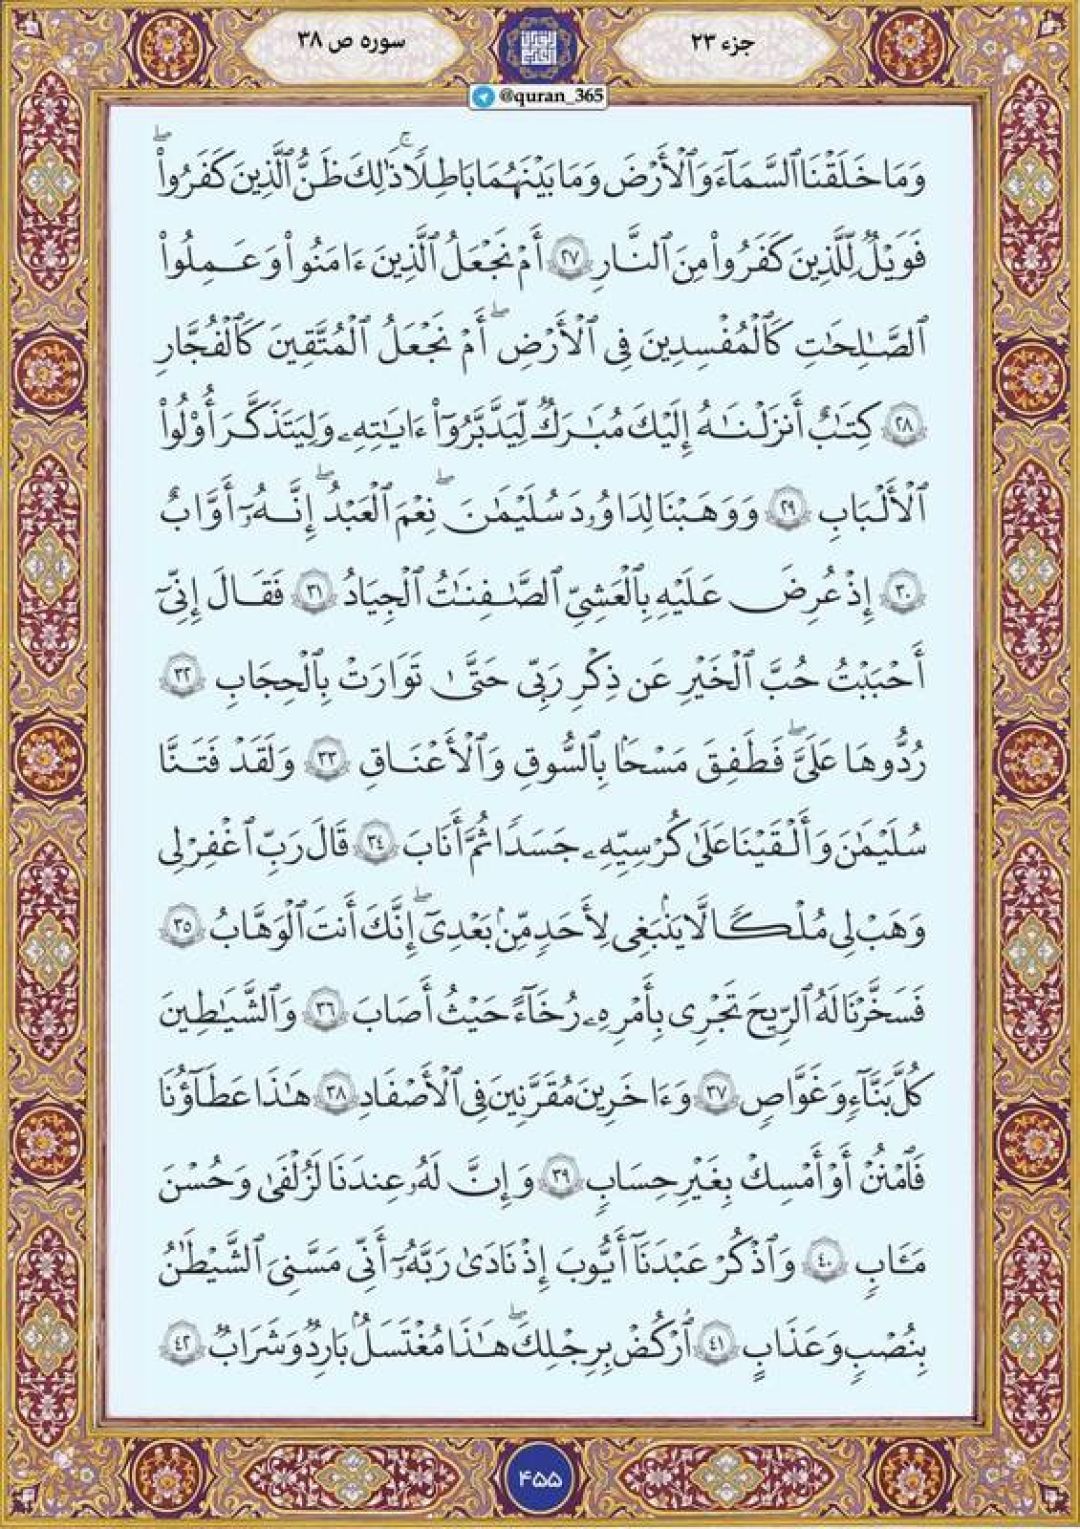 جزء ۲۳
سوره ص ۳۸
@quran_365
وَمَا خَلَقْنَا ٱلسَّمَآءَ وَٱلْأَرْضَ وَمَا بَيْنَهُمَا بَٰطِلًا ۚ ذَٰلِكَ ظَنُّ ٱلَّذِينَ كَفَرُوا۟ ۖ
فَوَيْلٌ لِّلَّذِينَ كَفَرُوا۟ مِنَ ٱلنَّارِ ﴿٢٧﴾ أَمْ نَجْعَلُ ٱلَّذِينَ ءَامَنُوا۟ وَعَمِلُوا۟
ٱلصَّٰلِحَٰتِ كَٱلْمُفْسِدِينَ فِى ٱلْأَرْضِ ۖ أَمْ نَجْعَلُ ٱلْمُتَّقِينَ كَٱلْفُجَّارِ
﴿٢٨﴾ كِتَٰبٌ أَنزَلْنَٰهُ إِلَيْكَ مُبَٰرَكٌ لِّيَدَّبَّرُوٓا۟ ءَايَٰتِهِۦ وَلِيَتَذَكَّرَ أُو۟لُوا۟
ٱلْأَلْبَٰبِ ﴿٢٩﴾ وَوَهَبْنَا لِدَاوُۥدَ سُلَيْمَٰنَ ۖ نِعْمَ ٱلْعَبْدُ ۖ إِنَّهُۥٓ أَوَّابٌ
﴿٣٠﴾ إِذْ عُرِضَ عَلَيْهِ بِٱلْعَشِىِّ ٱلصَّٰفِنَٰتُ ٱلْجِيَادُ ﴿٣١﴾ فَقَالَ إِنِّىٓ
أَحْبَبْتُ حُبَّ ٱلْخَيْرِ عَن ذِكْرِ رَبِّى حَتَّىٰ تَوَارَتْ بِٱلْحِجَابِ ﴿٣٢﴾
رُدُّوهَا عَلَىَّ ۖ فَطَفِقَ مَسْحًۢا بِٱلسُّوقِ وَٱلْأَعْنَاقِ ﴿٣٣﴾ وَلَقَدْ فَتَنَّا
سُلَيْمَٰنَ وَأَلْقَيْنَا عَلَىٰ كُرْسِيِّهِۦ جَسَدًا ثُمَّ أَنَابَ ﴿٣٤﴾ قَالَ رَبِّ ٱغْفِرْ لِى
وَهَبْ لِى مُلْكًا لَّا يَنۢبَغِى لِأَحَدٍ مِّنۢ بَعْدِىٓ ۖ إِنَّكَ أَنتَ ٱلْوَهَّابُ ﴿٣٥﴾
فَسَخَّرْنَا لَهُ ٱلرِّيحَ تَجْرِى بِأَمْرِهِۦ رُخَآءً حَيْثُ أَصَابَ ﴿٣٦﴾ وَٱلشَّيَٰطِينَ
كُلَّ بَنَّآءٍ وَغَوَّاصٍ ﴿٣٧﴾ وَءَاخَرِينَ مُقَرَّنِينَ فِى ٱلْأَصْفَادِ ﴿٣٨﴾ هَٰذَا عَطَآؤُنَا
فَٱمْنُنْ أَوْ أَمْسِكْ بِغَيْرِ حِسَابٍ ﴿٣٩﴾ وَإِنَّ لَهُۥ عِندَنَا لَزُلْفَىٰ وَحُسْنَ
مَـَٔابٍ ﴿٤٠﴾ وَٱذْكُرْ عَبْدَنَآ أَيُّوبَ إِذْ نَادَىٰ رَبَّهُۥٓ أَنِّى مَسَّنِىَ ٱلشَّيْطَٰنُ
بِنُصْبٍ وَعَذَابٍ ﴿٤١﴾ ٱرْكُضْ بِرِجْلِكَ ۖ هَٰذَا مُغْتَسَلٌۢ بَارِدٌ وَشَرَابٌ ﴿٤٢﴾
۴۵۵